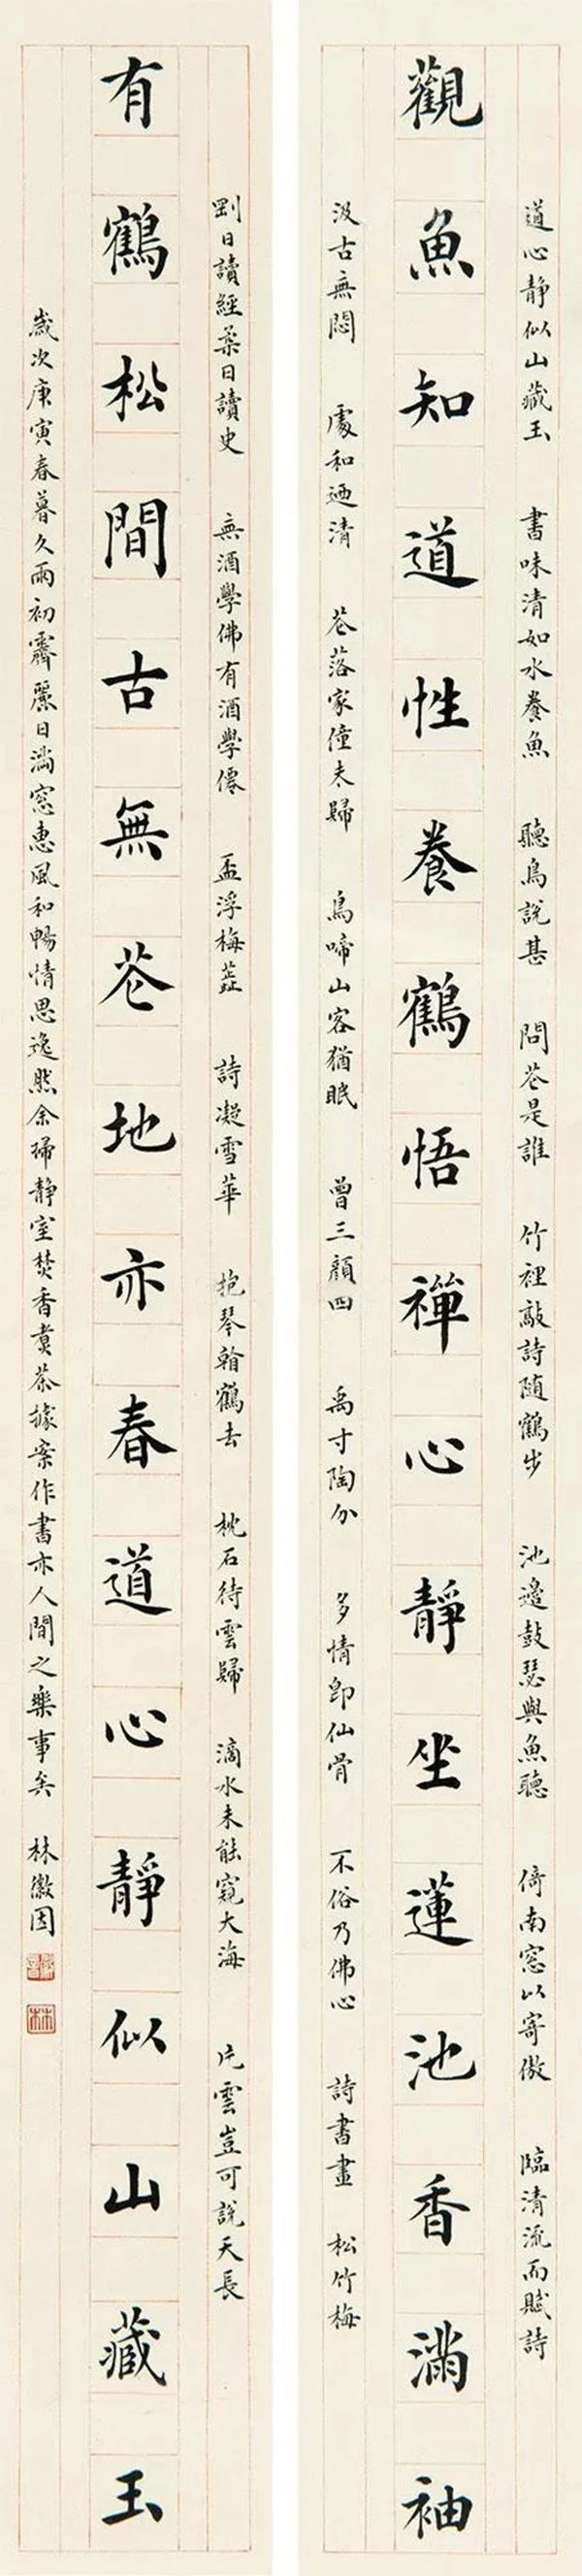 道心靜似山藏玉 書味清如水養魚 聽鳥說甚 問花是誰 竹裡敲詩隨鶴步 池邊鼓瑟與魚聽 倚南窓以寄傲 臨清流而賦詩
觀魚知道性養鶴悟禪心靜坐蓮池香滿袖
汲古無悶 處和迺清 花落家僮未歸 鳥啼山客猶眠 曾三顏四 禹寸陶分 多情即仙骨 不俗乃佛心 詩書畫 松竹梅
剛日讀經柔日讀史 無酒學佛有酒學僊 盃浮梅蕋 詩凝雪華 抱琴看鶴去 枕石待雲歸 滴水未能窺大海 片雲豈可說天長
有鶴松間古無花地亦春道心靜似山藏玉
歲次庚寅春暮久雨初霽麗日滿窓惠風和暢情思逸然余掃靜室焚香煑茶據案作書亦人間之樂事矣 林徽因